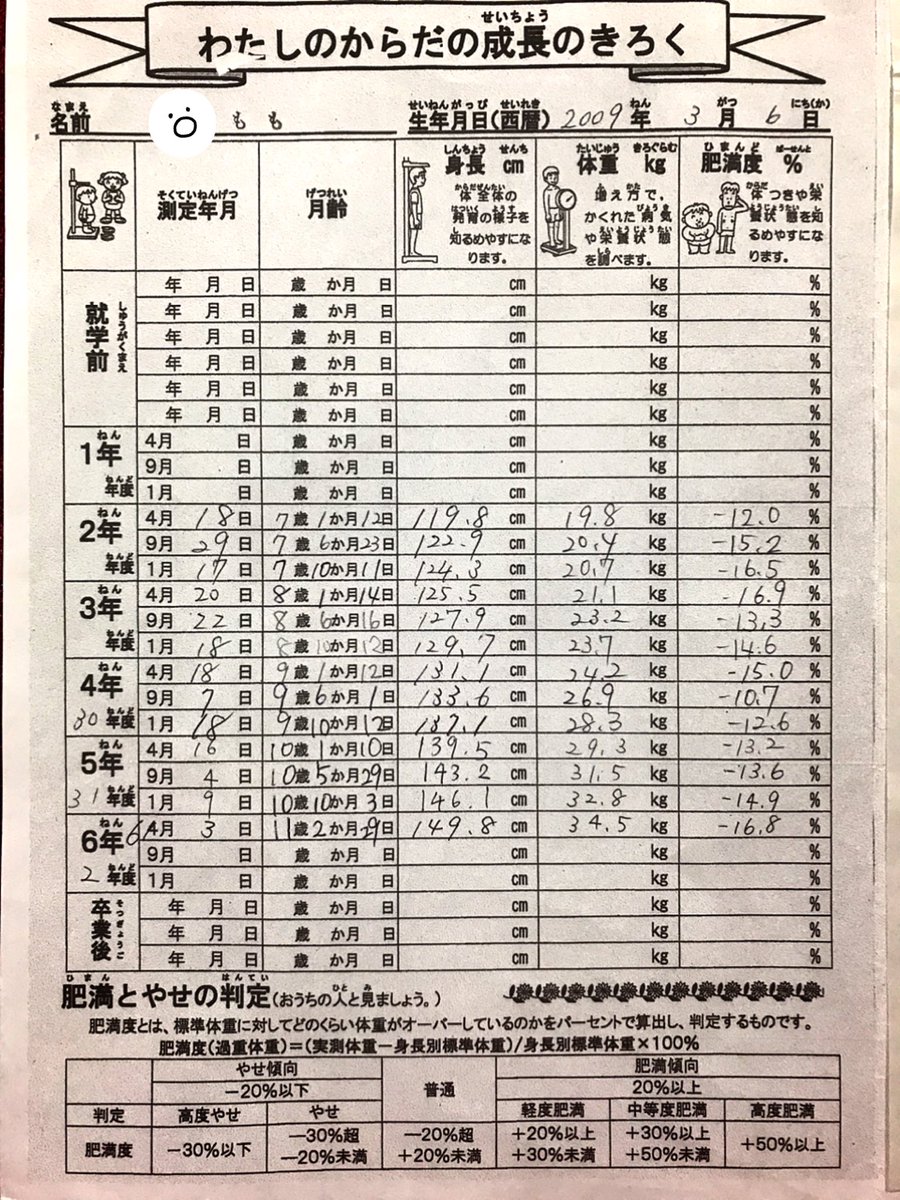 せいちょう
わたしのからだの成長のきろく
なまえ せいねんがっぴ せいれき ねん がつ にち(か)
名前 もも 生年月日(西暦) 2009年 3月 6日
そくていねんげつ げつれい しんちょう せんち たいじゅう きろぐらむ ひまんど ぱーせんと
測定年月 月齢 身長 cm 体重 kg 肥満度 %
からだぜんたい
体全体の
はついく ようす
発育の様子を
し
知るめやすにな
ります。
ふ かた
増え方で、
びょうき
かくれた病気
えいようじょうたい
や栄養状態
しら
を調べます。
からだ えい
体つきや栄
ようじょうたい し
養状態を知
るめやすにな
ります。
しゅうがくまえ
就学前
年 月 日 歳 か月 日 cm kg %
年 月 日 歳 か月 日 cm kg %
年 月 日 歳 か月 日 cm kg %
年 月 日 歳 か月 日 cm kg %
年 月 日 歳 か月 日 cm kg %
年 月 日 歳 か月 日 cm kg %
ねん
1年
ねんど
年度
4月 日 歳 か月 日 cm kg %
9月 日 歳 か月 日 cm kg %
1月 日 歳 か月 日 cm kg %
ねん
2年
ねんど
年度
4月 18日 7歳 1か月 12日 119.8 cm 19.8 kg -12.0 %
9月 29日 7歳 6か月 23日 122.9 cm 20.4 kg -15.2 %
1月 17日 7歳 10か月 11日 124.3 cm 20.7 kg -16.5 %
ねん
3年
ねんど
年度
4月 20日 8歳 1か月 14日 125.5 cm 21.1 kg -16.9 %
9月 22日 8歳 6か月 16日 127.9 cm 23.2 kg -13.3 %
1月 18日 8歳 10か月 12日 129.7 cm 23.7 kg -14.6 %
ねん
4年
ねんど
30年度
4月 18日 9歳 1か月 12日 131.1 cm 24.2 kg -15.0 %
9月 7日 9歳 6か月 1日 133.6 cm 26.9 kg -10.7 %
1月 18日 9歳 10か月 12日 137.1 cm 28.3 kg -12.6 %
ねん
5年
ねんど
31年度
4月 16日 10歳 1か月 10日 139.5 cm 29.3 kg -13.2 %
9月 4日 10歳 5か月 29日 143.2 cm 31.5 kg -13.6 %
1月 9日 10歳 10か月 3日 146.1 cm 32.8 kg -14.9 %
ねん
6年
ねんど
2年度
月 3日 11歳 2か月 日 149.8 cm 34.5 kg -16.8 %
9月 日 歳 か月 日 cm kg %
1月 日 歳 か月 日 cm kg %
そつぎょうご
卒業後
年 月 日 歳 か月 日 cm kg %
年 月 日 歳 か月 日 cm kg %
年 月 日 歳 か月 日 cm kg %
ひまん はんてい ひと み
肥満とやせの判定(おうちの人と見ましょう。)
肥満度とは、標準体重に対してどのくらい体重がオーバーしているのかをパーセントで算出し、判定するものです。
肥満度(過重体重)=(実測体重ー身長別標準体重)/身長別標準体重×100%
やせ傾向 普通 肥満傾向
-20%以下 20%以上
判定 高度やせ やせ 軽度肥満 中等度肥満 高度肥満
肥満度 -30%以下 -30%超 -20%未満 -20%超 +20%未満 +20%以上 +30%未満 +30%以上 +50%未満 +50%以上